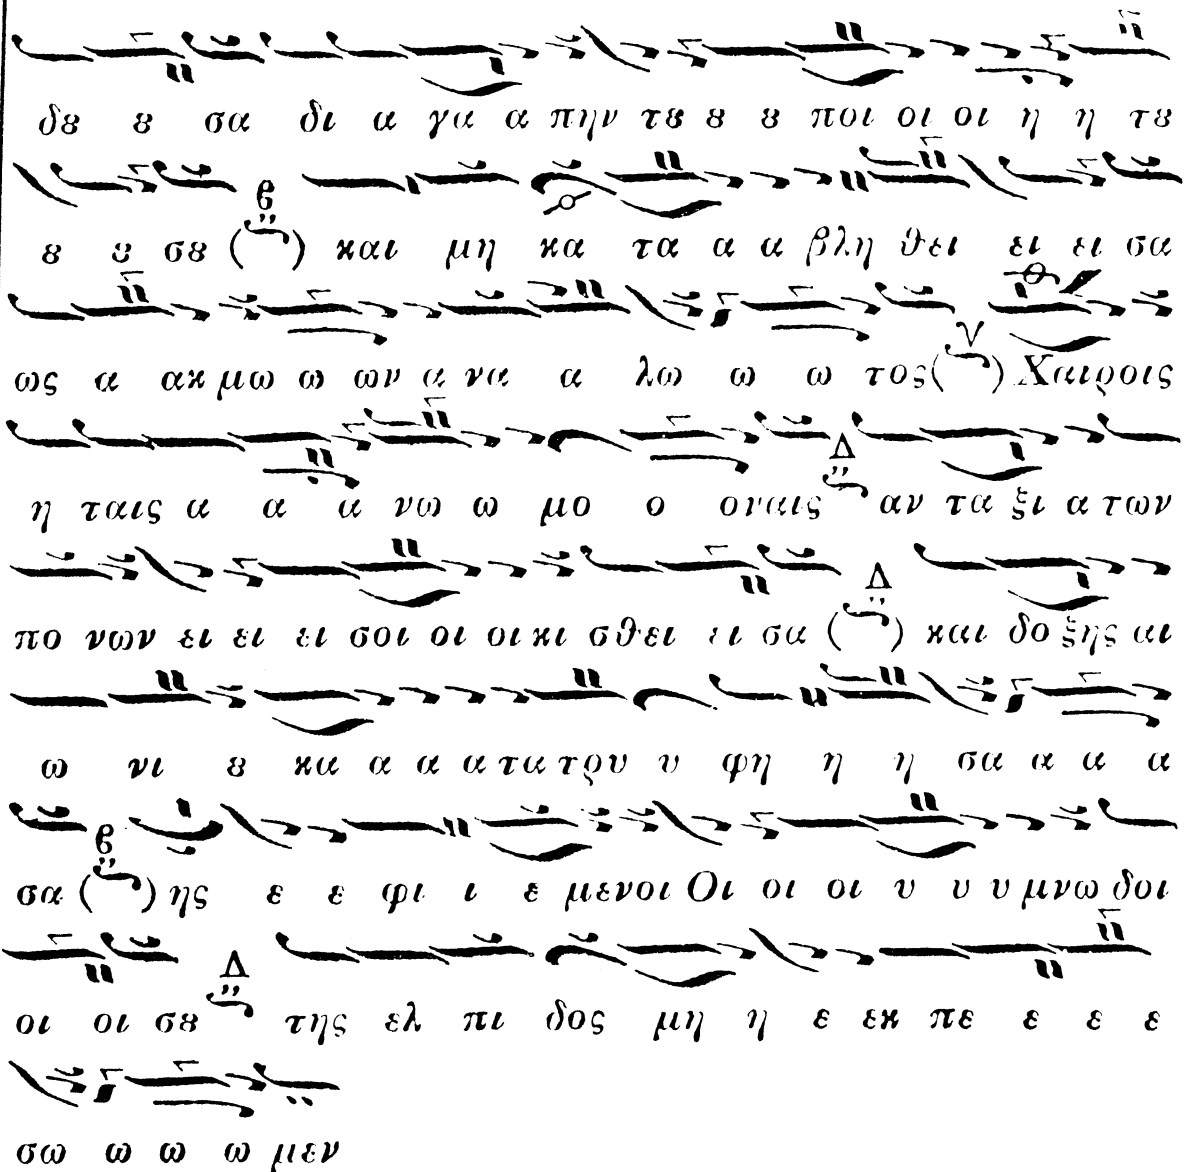 δȣ ȣ σα δι α γα α πην τȣ ȣ ȣ ποι οι οι η η τȣ
β
ȣ ȣ σȣ ( ) και μη κα τα α α βλη θει ει ει σα
ν
ως α ακ μω ω ων α να α λω ω ω τος( ) Χαιροις
Δ
η ταις α α α νω ω μο ο οναις αν τα ξι α των
Δ
πο νων ει ει ει σοι οι οι κι σθει ει σα ( ) και δο ξης αι
ω νι ȣ κα α α α τα τρυ υ φη η η σα α α α
β
σα ( ) ης ε ε φι ι ε μενοι Οι οι οι υ υ υ μνω δοι
Δ
οι οι σȣ της ελ πι δος μη η ε εκ πε ε ε ε
σω ω ω ω μεν